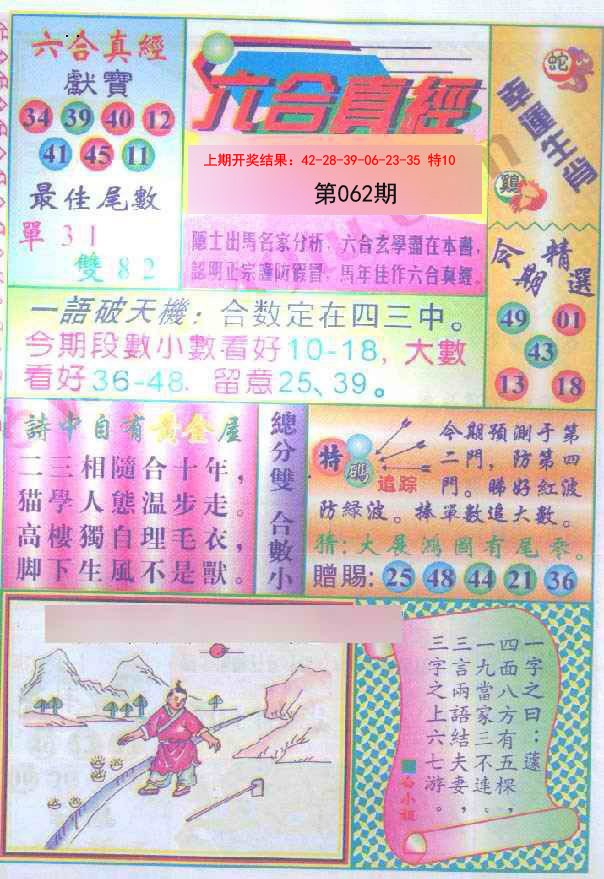 六合真經
獻寶
34 39 40 12
41 45 11
最佳尾數
單31
雙82
六合真經
上期开奖结果：42-28-39-06-23-35 特10
第062期
隱士出馬名家分析，六合玄學盡在本書，
認明正宗謹防假冒，馬年佳作六合真經。
蛇
幸運生肖
鷄
今期
精選
49 01
43
13 18
一語破天機：合数定在四三中。
今期段數小數看好10-18，大數
看好36-48．留意25、39。
詩中自有黃金屋
二三相隨合十年，
猫學人態温步走。
高樓獨自理毛衣，
脚下生風不是獸。
總分雙 合數小
特碼
追踪
今期預測于第
二門，防第四
門。睇好紅波
防綠波。捧單數追大數。
猜：大展鸿圖有尾零。
贈賜：25 48 44 21 36
一字之曰：蓬
四面八方有五棵，
一九當家三不達、
三言兩語結夫妻，
三字之上六七游。